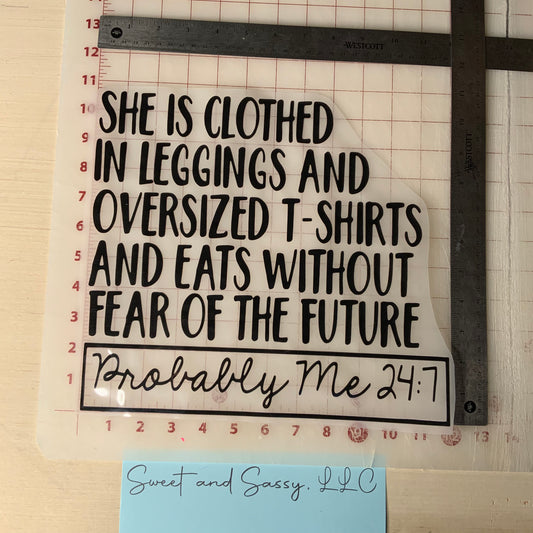 WESTCOTT
SHE IS CLOTHED
IN LEGGINGS AND
OVERSIZED T-SHIRTS
AND EATS WITHOUT
FEAR OF THE FUTURE
Probably Me 24:7
WESTCOTT
13
12
11
10
9
8
7
6
5
4
3
2
1
1 2 3 4 5 6 7 8 10 11 12 13
Sweet and Sassy, LLC